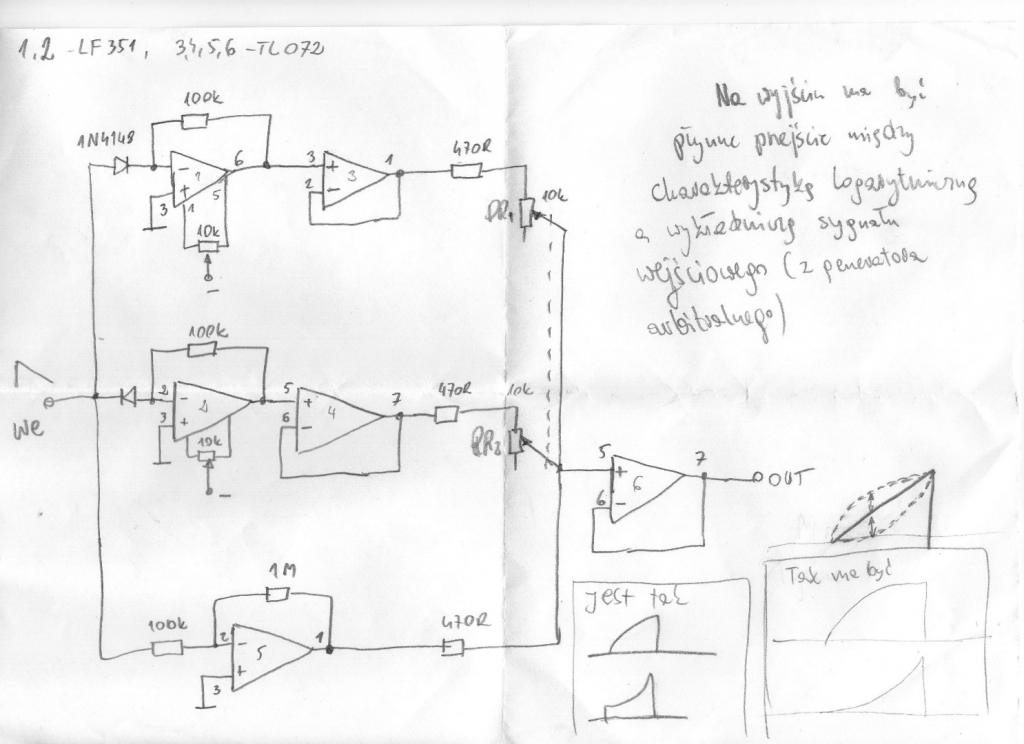 1,2 - LF351, 3,4,5,6 - TL072
100k
1N4148
- 1 +
6
3
1
5
10k
-
3
2
+ - 3
1
470R
10k
PR1
Na wyjściu ma być
płynne przejście między
charakterystyką logarytmiczną
a wykładniczą sygnału
wejściowego (z generatora
arbitralnego)
100k
We
2
3
- + 2
10k
-
5
6
+ - 4
7
470R
10k
PR2
5
6
+ - 6
7
OUT
1M
100k
2
3
- + 5
1
470R
jest tak
Tak ma być